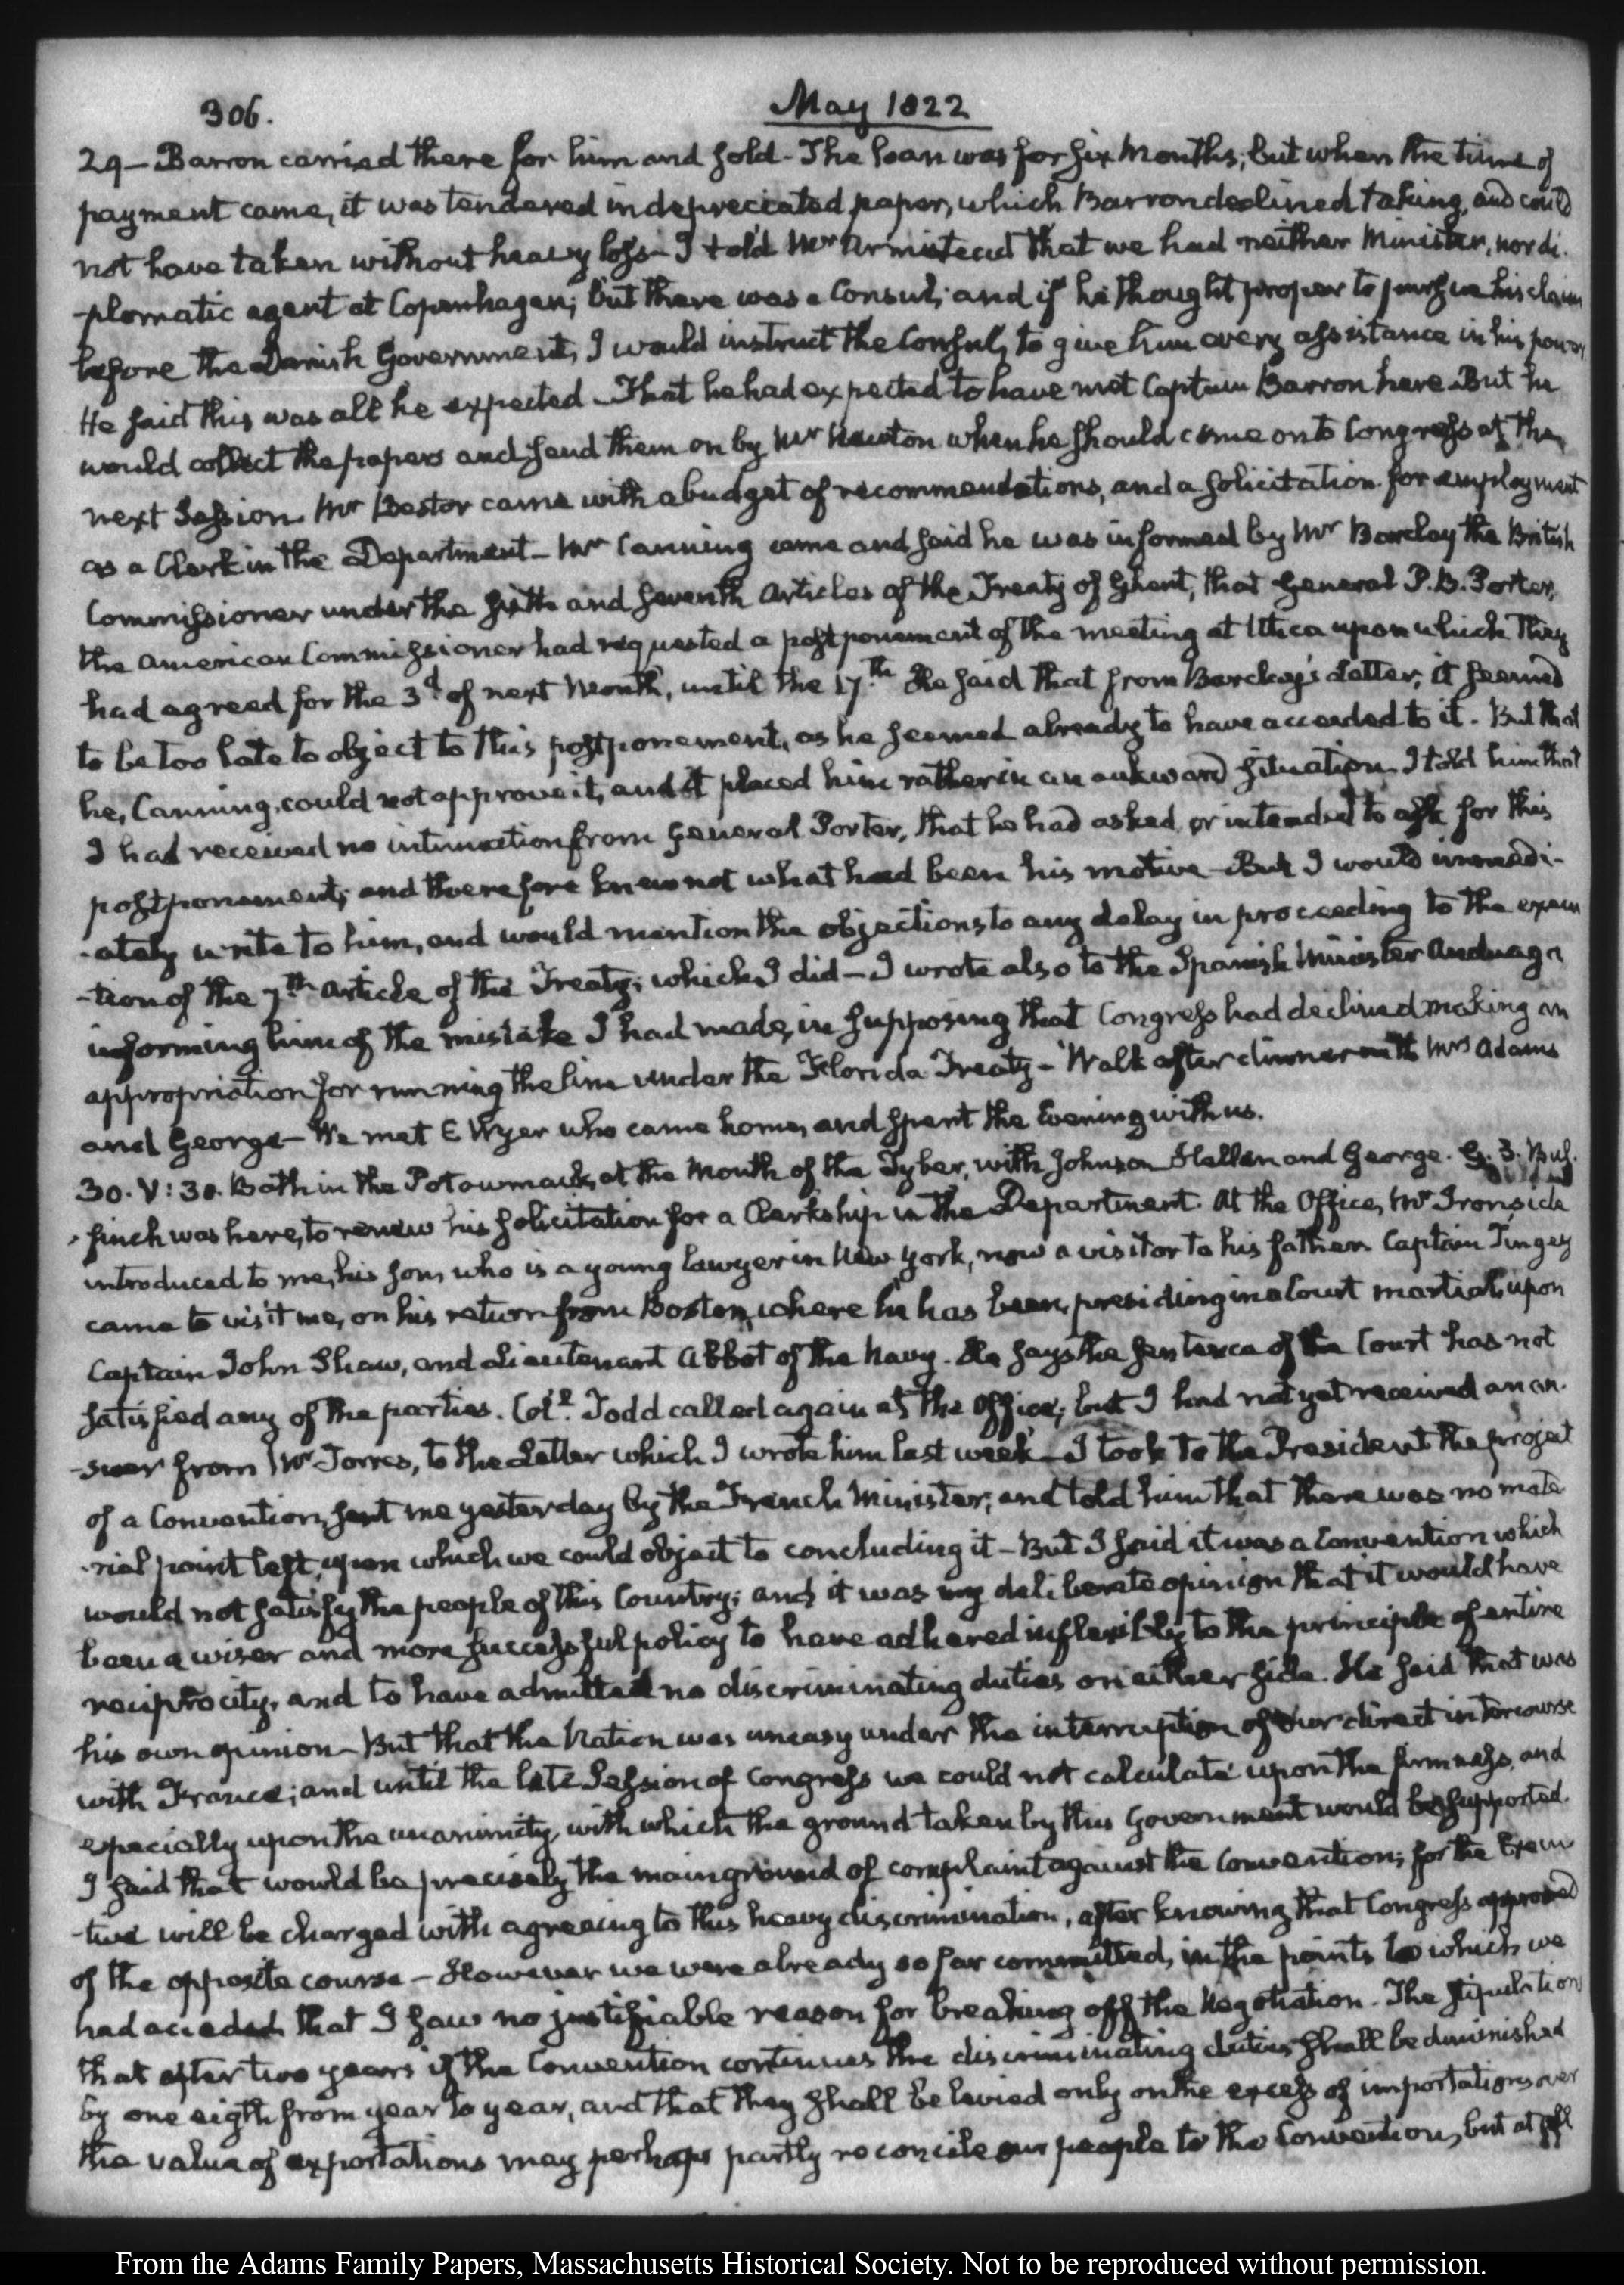 306.
May 1822
29 — Barron carried there for him and sold - The loan was for six Months; but when the time of
payment came, it was tendered in depreciated paper, which Barron declined taking, and could
not have taken without heavy loss - I told Mr Armistead that we had neither Minister, nor di-
-plomatic agent at Copenhagen; but there was a Consul; and if he thought proper to pursue his claim
before the Danish Government, I would instruct the Consul, to give him every assistance in his power
He said this was all he expected - That he had expected to have met Captain Barron here - But he
would collect the papers and send them on by Mr Newton when he should come on to Congress at the
next Session. Mr Bestor came with a budget of recommendations, and a solicitation for employment
as a Clerk in the Department - Mr Canning came and said he was informed by Mr Barclay the British
Commissioner under the sixth and seventh Articles of the Treaty of Ghent, that General P. B. Porter,
the American Commissioner had requested a postponement of the meeting at Utica upon which they
had agreed for the 3d of next Month, until the 17th He said that from Barclay's Letter, it seemed
to be too late to object to this postponement, as he seemed already to have acceeded to it. But that
he, Canning, could not approve it, and it placed him rather in an aukward situation. I told him that
I had received no intimation from General Porter, that he had asked, or intended to ask for this
postponement; and therefore knew not what had been his motive - But I would immedi-
-ately write to him, and would mention the objections to any delay in proceeding to the execu
-tion of the 7th Article of the Treaty; which I did - I wrote also to the Spanish Minister Anduaga
informing him of the mistake I had made, in supposing that Congress had declined making an
appropriation for running the line under the Florida Treaty - Walk after dinner with Mrs Adams
and George - We met E Wyer who came home, and spent the Evening with us.
30. V:30. Bath in the Potowmack, at the Mouth of the Tyber, with Johnson Hellen and George. G. B. Bul-
-finch was here, to renew his solicitation for a Clerkship in the Department. At the Office, Mr Ironside
introduced to me, his son, who is a young Lawyer in New York, now a visitor to his father. Captain Tingey
came to visit me, on his return from Boston, where he has been, presiding in a Court martial, upon
Captain John Shaw, and Lieutenant Abbot of the Navy. He says the sentence of the Court has not
satisfied any of the parties. Coll. Todd called again at the Office; but I had not yet received an an-
-swer from Mr Torres, to the Letter which I wrote him last week - I took to the President the projet
of a Convention, sent me yesterday by the French Minister; and told him that there was no mate
-rial point left, upon which we could object to concluding it - But I said it was a Convention which
would not satisfy the people of this Country; and it was my deliberate opinion that it would have
been a wiser and more successful policy to have adhered inflexibly to the principle of entire
reciprocity, and to have admitted no discriminating duties on either side. He said that was
his own opinion - But that the Nation was uneasy under the interruption of our direct intercourse
with France; and until the late Session of Congress we could not calculate upon the firmness, and
especially upon the unanimity, with which the ground taken by this Government would be supported.
I said that would be precisely the main ground of complaint against the Convention; for the Execu
-tive will be charged with agreeing to this heavy discrimination, after knowing that Congress approved
of the opposite course - However we were already so far committed, in the points to which we
had acceded that I saw no justifiable reason for breaking off the Negotiation. The stipulation
that after two years if the Convention continues the discriminating duties shall be diminished
by one eigth from year to year, and that they shall be levied only on the excess of importations over
the value of exportations may perhaps partly reconcile our people to the Convention, but at all
From the Adams Family Papers, Massachusetts Historical Society. Not to be reproduced without permission.